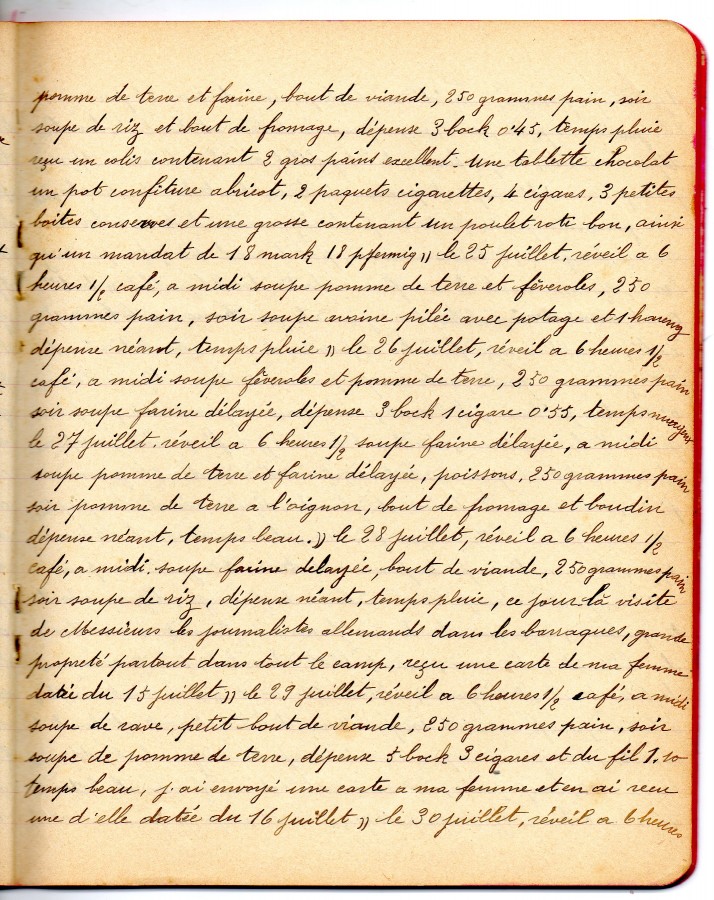 pomme de terre et farine, bout de viande, 250 grammes pain, soir
soupe de riz et bout de fromage, dépense 3 bock 0'45, temps pluie
reçu un colis contenant 2 gros pains excellent. Une tablette chocolat
un pot confiture abricot, 2 paquets cigarettes, 4 cigares, 3 petites
boites conserves et une grosse contenant un poulet roti bon, ainsi
qu'un mandat de 18 mark 18 pfennig )) le 25 juillet, réveil a 6
heures 1/2 café, a midi soupe pomme de terre et féveroles, 250
grammes pain, soir soupe avoine pilée avec potage et 1 hareng
dépense néant, temps pluie )) le 26 juillet, réveil a 6 heures 1/2
café, a midi soupe féveroles et pomme de terre, 250 grammes pain
soir soupe farine délayée, dépense 3 bock 1 cigare 0'55, temps nuageux
le 27 juillet. réveil a 6 heures 1/2 soupe farine délayée, a midi
soupe pomme de terre et farine délayée, poissons, 250 grammes pain
soir pomme de terre a l'oignon, bout de fromage et boudin
dépense néant, temps beau. )) le 28 juillet, réveil a 6 heures 1/2
café, a midi. soupe farine delayée, bout de viande, 250 grammes pain
soir soupe de riz, dépense néant, temps pluie, ce jour là visite
de Messieurs les journalistes allemands dans les barraques, grande
propreté partout dans tout le camp, reçu une carte de ma femme
datée du 15 juillet )) le 29 juillet, réveil a 6 heures 1/2 café, a midi
soupe de rave, petit bout de viande, 250 grammes pain, soir
soupe de pomme de terre, dépense 5 bock 3 cigares et du fil 1.10
temps beau, j.ai envoyé une carte a ma femme et en ai recu
une d'elle datée du 16 juillet )) le 30 juillet, réveil a 6 heures